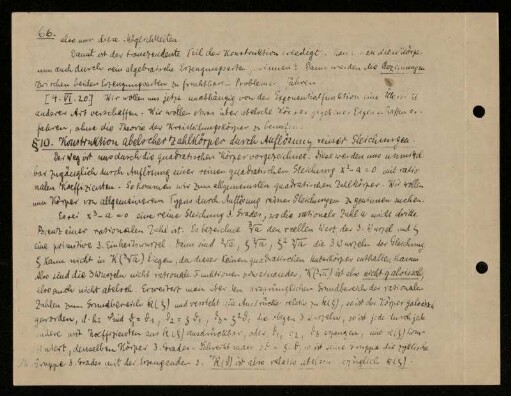 66. also nur diese Möglichkeiten.
Damit ist der transzendente Teil der Konstruktion erledigt. Kann man diese Körper
nun auch durch rein algebraische Erzeugungsarten gewinnen? Dann werden die Beziehungen
zwischen beiden Erzeugungsarten zu fruchtbaren Problemen führen.
[4.VI.20] Wir wollen uns jetzt unabhängig von der Exponentialfunktion eine Theorie
anderer Art verschaffen. Wir wollen etwas über abelsche Körper
fahren, ohne die Theorie der Kreisteilungskörper zu benutzen.
§10. Konstruktion abelscher Zahlkörper durch Auflösung reiner Gleichungen.
Der Weg ist uns durch die quadratischen Körper vorgezeichnet. Diese werden uns unmittel-
bar zugänglich durch Auflösung einer reinen quadratischen Gleichung x²-a=0 mit ratio-
nalen Koeffizienten. So kommen wir zum allgemeinsten quadratischen Zahlkörper. Wir wollen
nun Körper von allgemeinerem Typus durch Auflösung reiner Gleichungen zu gewinnen suchen.
Es sei x³-a=0 eine reine Gleichung 3. Grades, wo die rationale Zahl a nicht dritte
Potenz einer rationalen Zahl ist. Es bezeichne ∛a den reellen Wert der 3. Wurzel und ζ
eine primitive 3. Einheitswurzel. Dann sind ∛a, ζ∛a, ζ²∛a die 3 Wurzeln der Gleichung.
ζ kann nicht in K(∛a) liegen, da dieser keinen quadratischen Unterkörper enthalten kann.
Also sind die 3 Wurzeln nicht rationale Funktionen voneinander, K(∛a) ist also nicht galoisch,
also auch nicht abelsch. Erweitert man aber den ursprünglichen Grundbereich der rationalen
Zahlen zum Grundbereich K(ζ) und versteht die Ausdrücke relativ zu K(ζ), so ist der Körper galoisch
geworden, d.h. sind
die obigen 3 Wurzeln, so ist jede durch jede
andere mit Koeffizienten aus K(ζ) ausdrückbar,
demselben Körper 3. Grades. Schreibt man
so ist seine Gruppe die zyklische
Gruppe 3. Grades mit der Erzeugenden
ist also relativ abelsch bezüglich K(ζ)